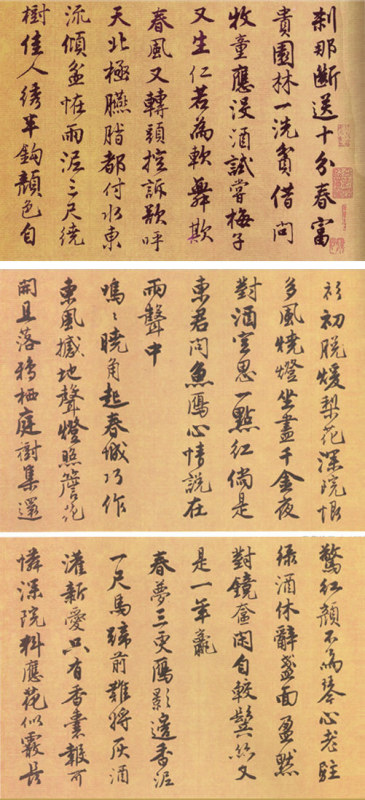 刹那斷送十分春富
貴園林一洗貧借問
牧童應没酒試嘗梅子
又生仁若為軟舞欺
春風又轉頭控訴欲呼
天北極臙脂都付水東
流傾盆怪雨泥三尺繞
樹佳人繡半鉤顏色自
衫初脱煖梨花深院恨
多風燒燈坐盡千金夜
對酒空思一點紅倘是
東君問魚鴈心情說在
雨聲中
嗚嗚曉角起春城巧作
東風撼地聲燈照簷花
開且落鴉棲庭樹集還
驚紅顏不為琴心老駐
緑酒休辭盞面盈默
對鏡奩閑自較鬢絲又
是一年
春夢三更鴈影邊香泥
一尺馬蹄前難將灰酒
灌新愛只有香囊報可
憐深院料應花似霰長